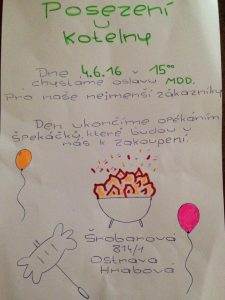 Posezení
u
kotelny
Dne 4.6.16 v 15⁰⁰
chystáme oslavu MDD.
Pro naše nejmenší zákazníky
Den ukončíme opékáním
špekáčků, které budou u
nás k zakoupení.
Šrobárová
814/1
Ostrava
Hrabová